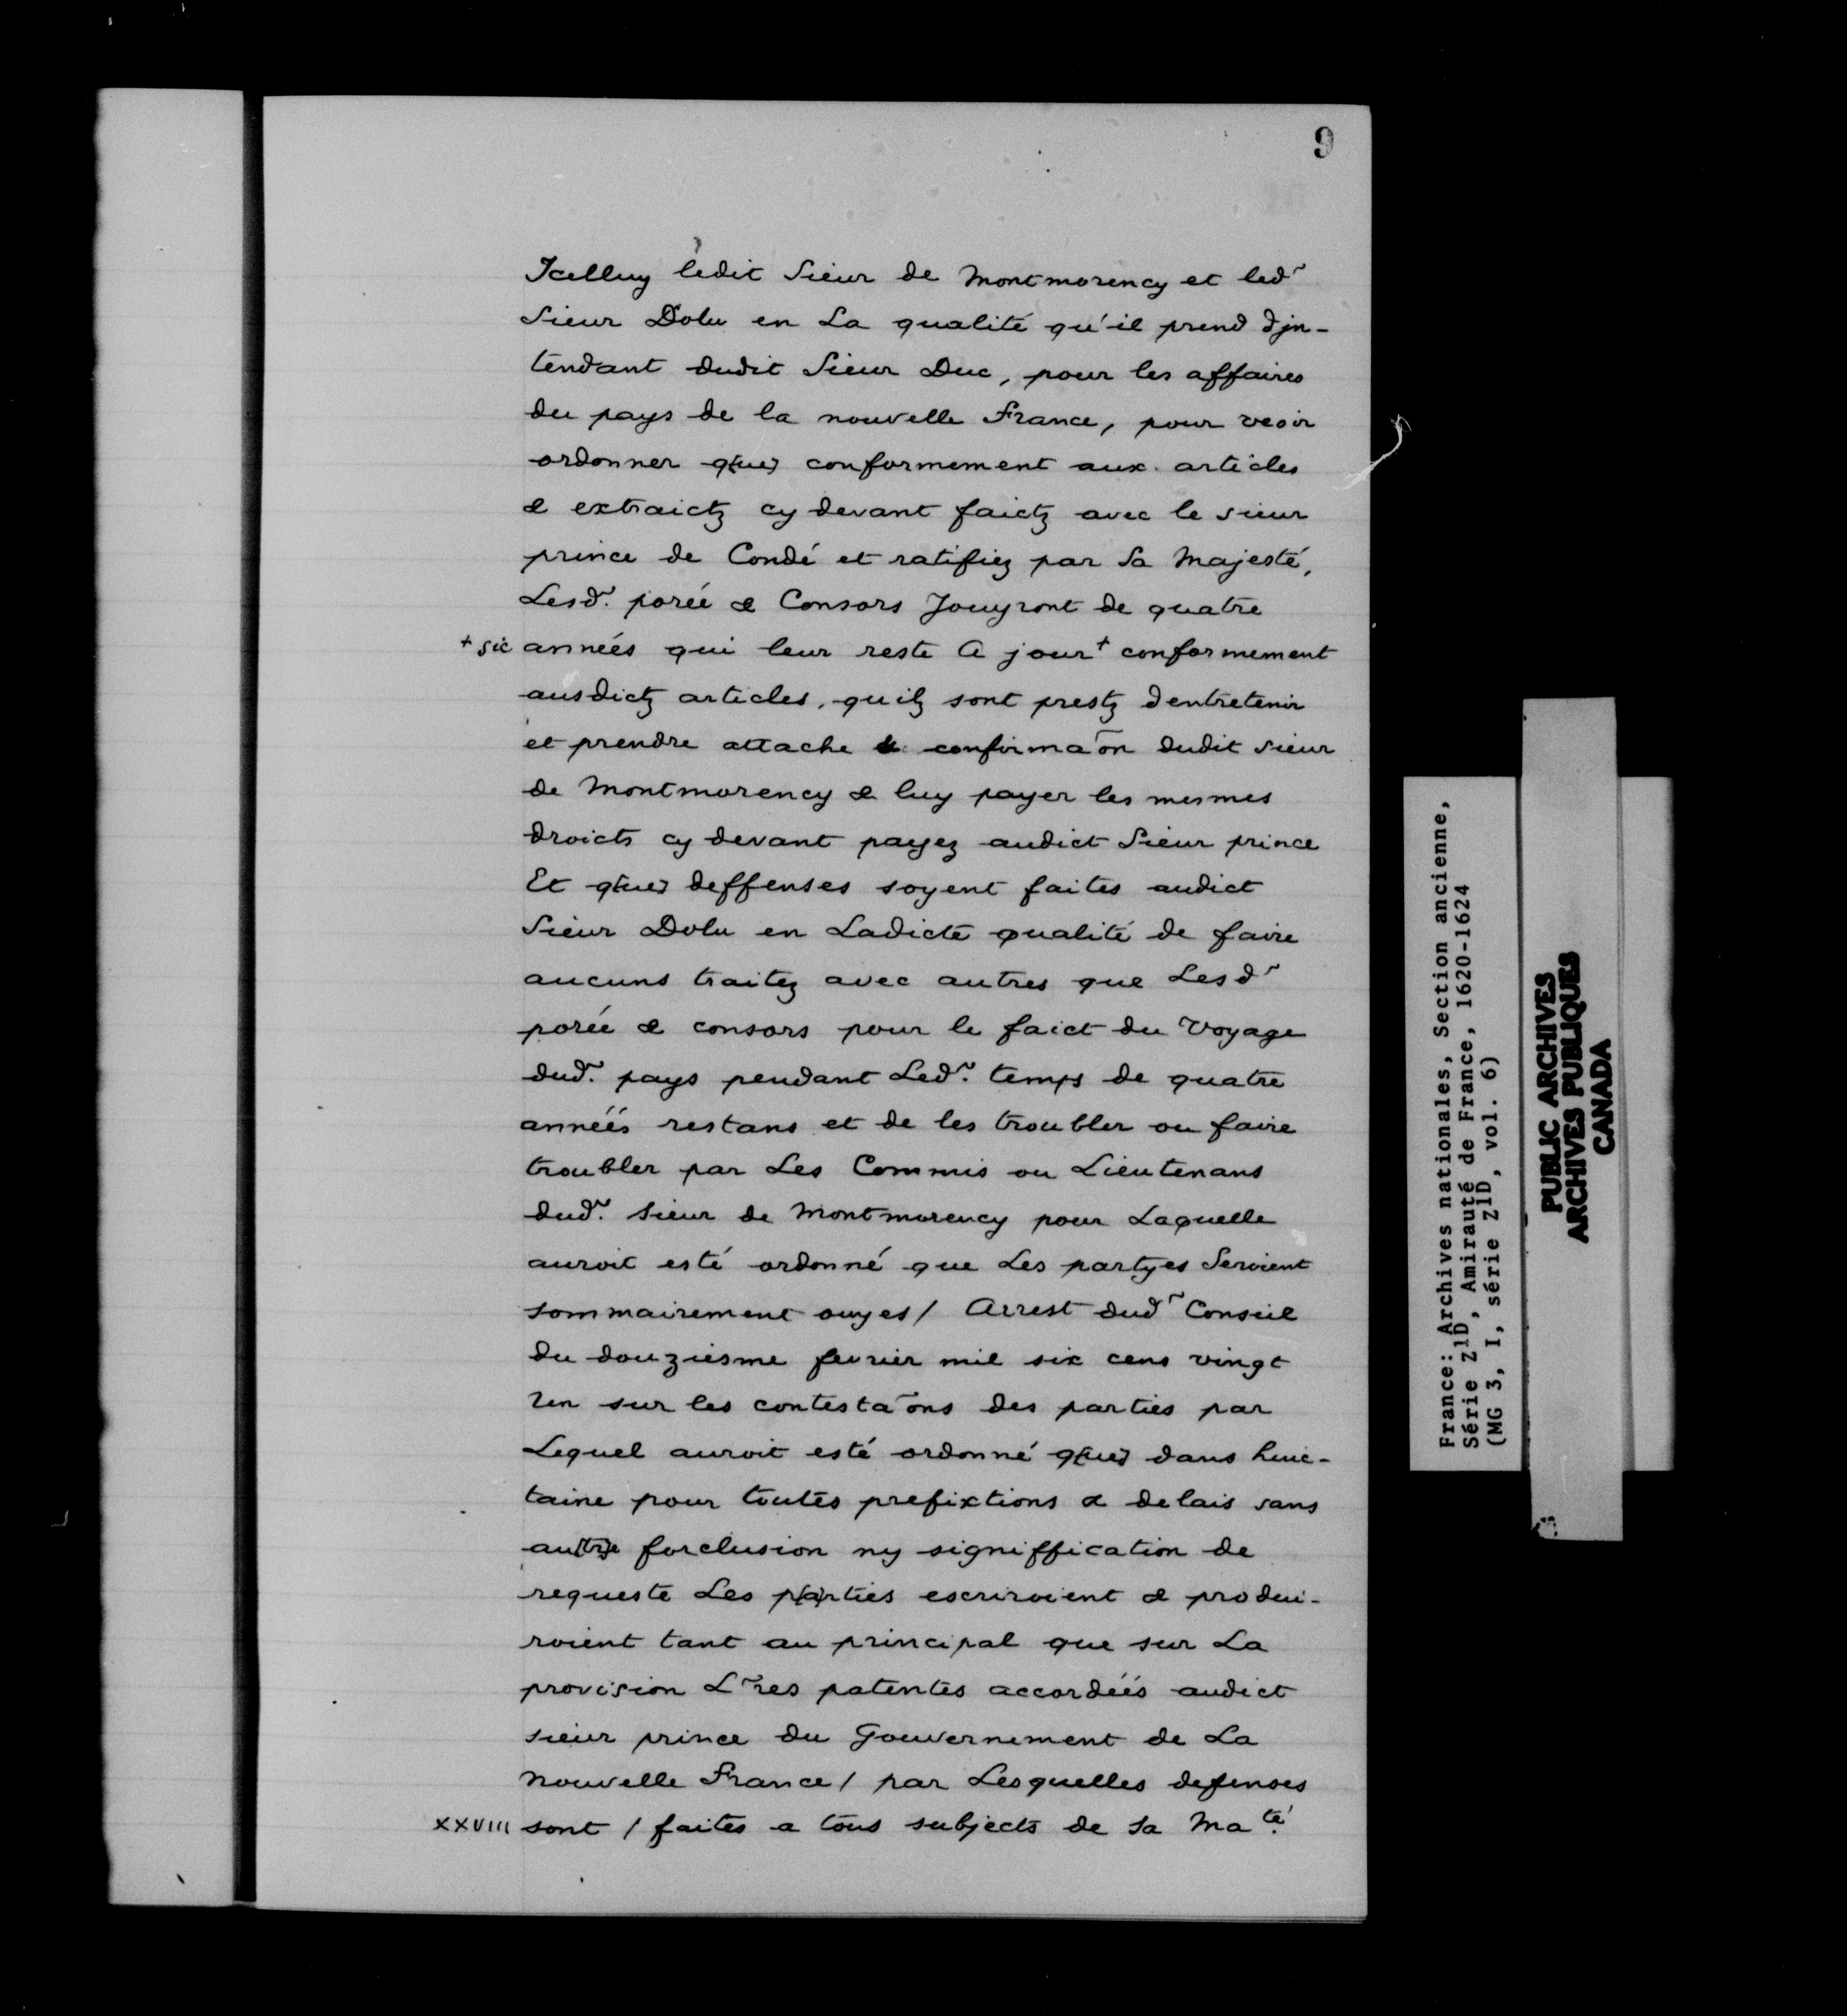 9
Icelluy ledit Sieur de Montmorency et led~
Sieur Dolu en La qualité qu'il prend djn-
tendant dudit Sieur Duc, pour les affaires
du pays de la nouvelle France, pour veoir
ordonner q[ue] conformement aux articles
& extraictz cy devant faictz avec le sieur
prince de Condé et ratifiez par Sa Majesté,
Lesd~. porée & Consors Jouyront de quatre
+ sic années qui leur reste A jour+ conformement
ausdictz articles, quilz sont prestz dentretenir
et prendre attache & confirma~on dudit sieur
de Montmorency & luy payer les mesmes
droicts cy devant payez audict Sieur prince
Et q[ue] deffenses soyent faites audict
Sieur Dolu en Ladicte qualité de faire
aucuns traitez avec autres que Lesd~
porée & consors pour le faict du Voyage
dud~. pays pendant Led~. temps de quatre
années restans et de les troubler ou faire
troubler par Les Commis ou Lieutenans
dud~. Sieur de Montmorency pour Laquelle
auroit esté ordonné que Les partyes Seroient
sommairement ouyes / Arrest dud~ Conseil
du douziesme feurier mil six cens vingt
Un sur les contesta~ons des parties par
Lequel auroit esté ordonné q[ue] dans huic-
taine pour toutes prefixtions & delais sans
au[tr]e forclusion ny signiffication de
requeste Les p[a]rties escriroient & produi-
roient tant au principal que sur La
provision L~res patentes accordéés audict
sieur prince du Gouvernement de La
Nouvelle France / par Lesquelles defenses
XXVIII sont / faites a tous subjects de Sa Ma.té
France: Archives nationales, Section ancienne,
Série Z1D, Amirauté de France, 1620-1624
(MG 3, I, série Z1D, vol. 6)
PUBLIC ARCHIVES
ARCHIVES PUBLIQUES
CANADA